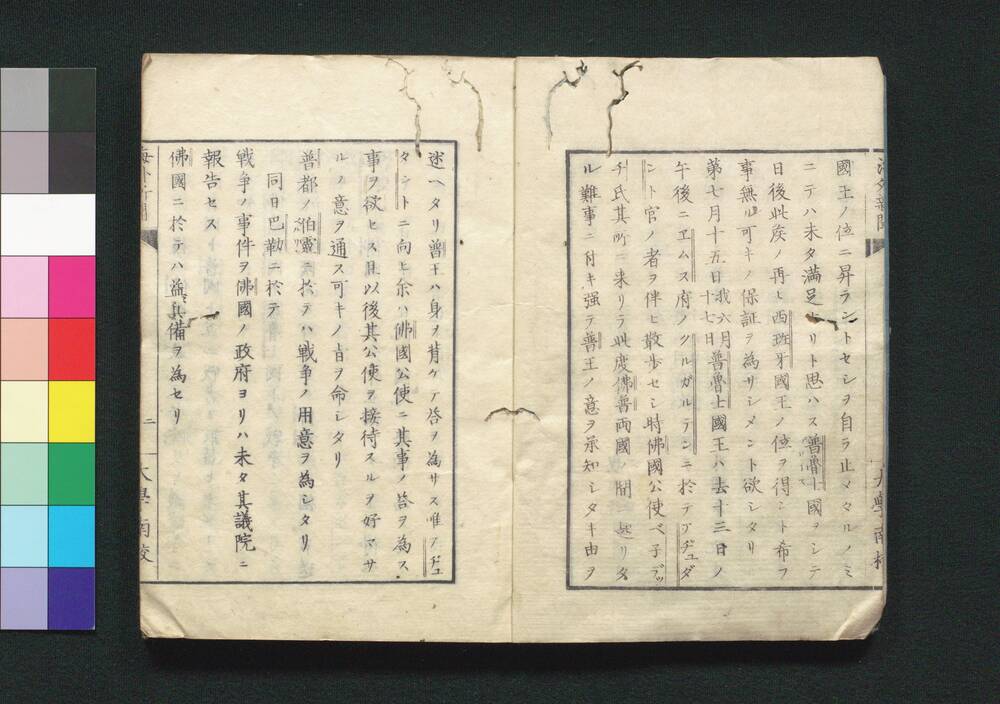 國王ノ位ニ昇ラントセシヲ自ラ止マタルノミ
ニテハ未タ滿足セリト思ハス普魯士國ヲシテ
日後此矦ノ再ヒ西班牙國王ノ位ヲ得ント希フ
事無ル可キノ保証ヲ為サシメント欲シタリ
第七月十五日我六月十七日普魯士國王ハ去十三日ノ
午後ニヱムス府ノクルガルテンニ於テアヂユダ
ント官ノ者ヲ伴ヒ散歩セシ時佛國公使ベ子デッ
チ氏其所ニ来リテ此度佛普両國ノ間ニ起リタ
ル難事ニ付キ強テ普王ノ意ヲ承知シタキ由ヲ
述ヘタリ普王ハ身ヲ背ケテ答ヲ為サス唯アヂユ
タントニ向ヒ余ハ佛國公使ニ其事ノ答ヲ為ス
事ヲ欲セス且以後其公使ヲ接待スルヲ好マサ
ルノ意ヲ通ス可キノ旨ヲ命シタリ
普都ノ伯靈ニ於テハ戦争ノ用意ヲ為シタリ
同日巴勒ニ於テ
戦争ノ事件ヲ佛國ノ政府ヨリハ未タ其議院ニ
報告セス
佛國ニ於テハ益其備ヲ為セリ
海外新聞
二
大學南校